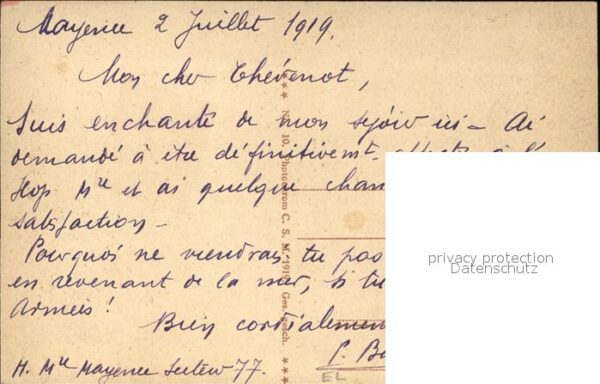 Mayence 2 Juillet 1919.
Mon cher Thévenot,
Suis enchanté de mon séjour ici – Ai
demandé à être définitivemt. à l'
Hop Mre et ai quelque chan
satisfaction –
Pourquoi ne viendrais-tu pas
en revenant de la mer, si tu
Armées!
Bien cordialemen
H. Mre Mayence Secteur 77.
No. 10. Photochrom C. S. M. 1919. Ges. gesch.
EL
privacy protection
Datenschutz